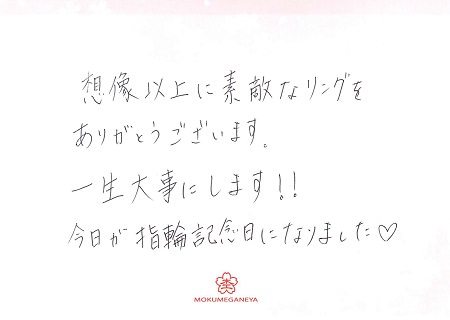 想像以上に素敵なリングを
ありがとうございます。
一生大事にします!!
今日が指輪記念日になりました♡
MOKUMEGANEYA